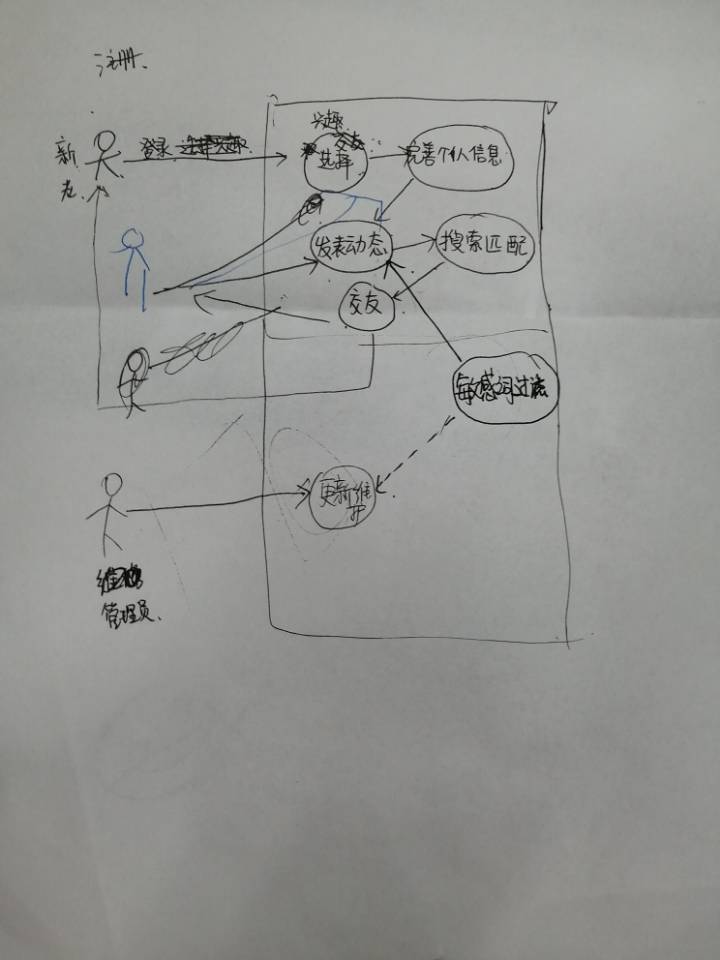 注册.
兴趣
新
登录
选择
完善个人信息
发表动态
搜索匹配
交友
敏感词过滤
更新维护
管理员.